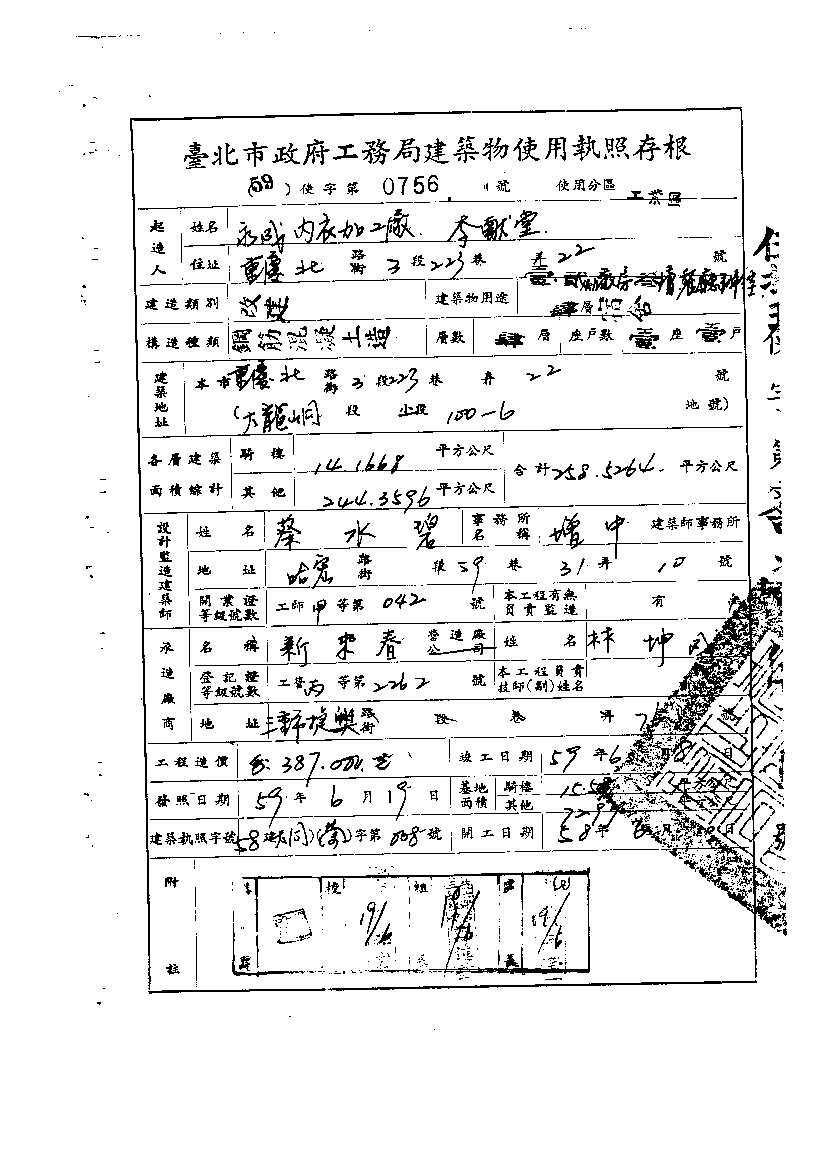 臺北市政府工務局建築物使用執照存根
(59)使字第 0756 號 使用分區 工業區
起造人 姓名 永成內衣加工廠 李獻堂
住址 重慶北 路街 3 段 223 巷 弄 22 號
建造類別 改建 建築物用途
肆層宿舍
構造種類 鋼筋混凝土造 層數 肆 層 座戶數 壹 座 壹 戶
建築地址 本市 重慶北 路街 3 段 223 巷 弄 22 號
(大龍峒 段 小段 100-6 地號)
各層建築面積綜計 騎樓 14.1668 平方公尺 合計 258.5264 平方公尺
其他 244.3596 平方公尺
設計監造建築師 姓名 蔡水碧 事務所名稱 增中 建築師事務所
地址 路街 段 59 巷 31 弄 10 號
開業證等級號數 工師 甲 等第 042 號 本工程有無負責監造 有
承造廠商 名稱 新東春 營造廠公司 姓名 林坤
登記證等級號數 工營 丙 等第 2262 號 本工程負責技師(副)姓名
地址 路街 段 巷 弄 號
工程造價 387.000 竣工日期 59 年 6 月 8 日
發照日期 59 年 6 月 19 日 基地面積 騎樓 平方公尺
其他 平方公尺
建築執照字號 58 建 字第 008 號 開工日期 58 年 月 日
附註
19/6 19/6